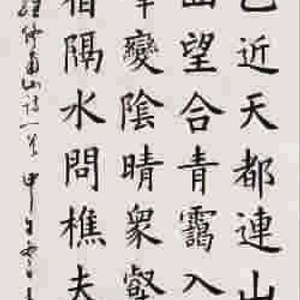 乙近天都連山
望合青靄入
變陰晴衆壑
宿隔水問樵夫
維終南山詩一首 甲午